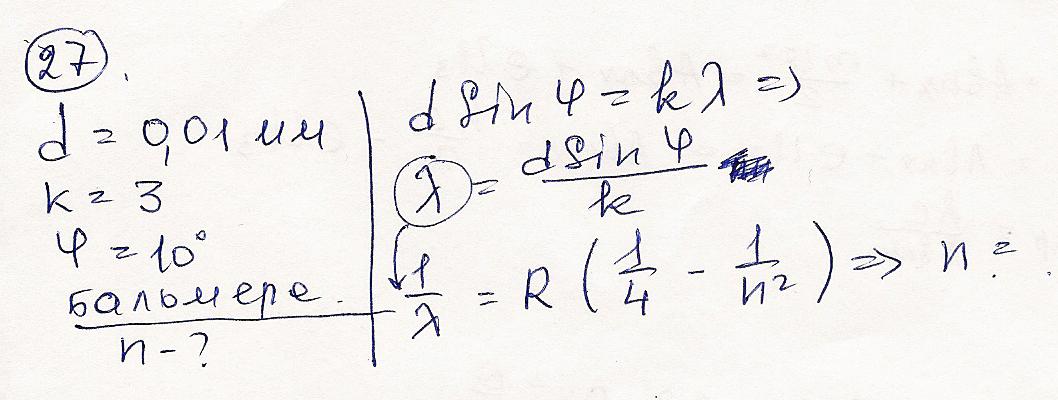 27.
d = 0,01 мм
k = 3
φ = 10°
бальмера.
n - ?
d sin φ = kλ =>
λ = d sin φ / k
1/λ = R (1/4 - 1/n²) => n = .